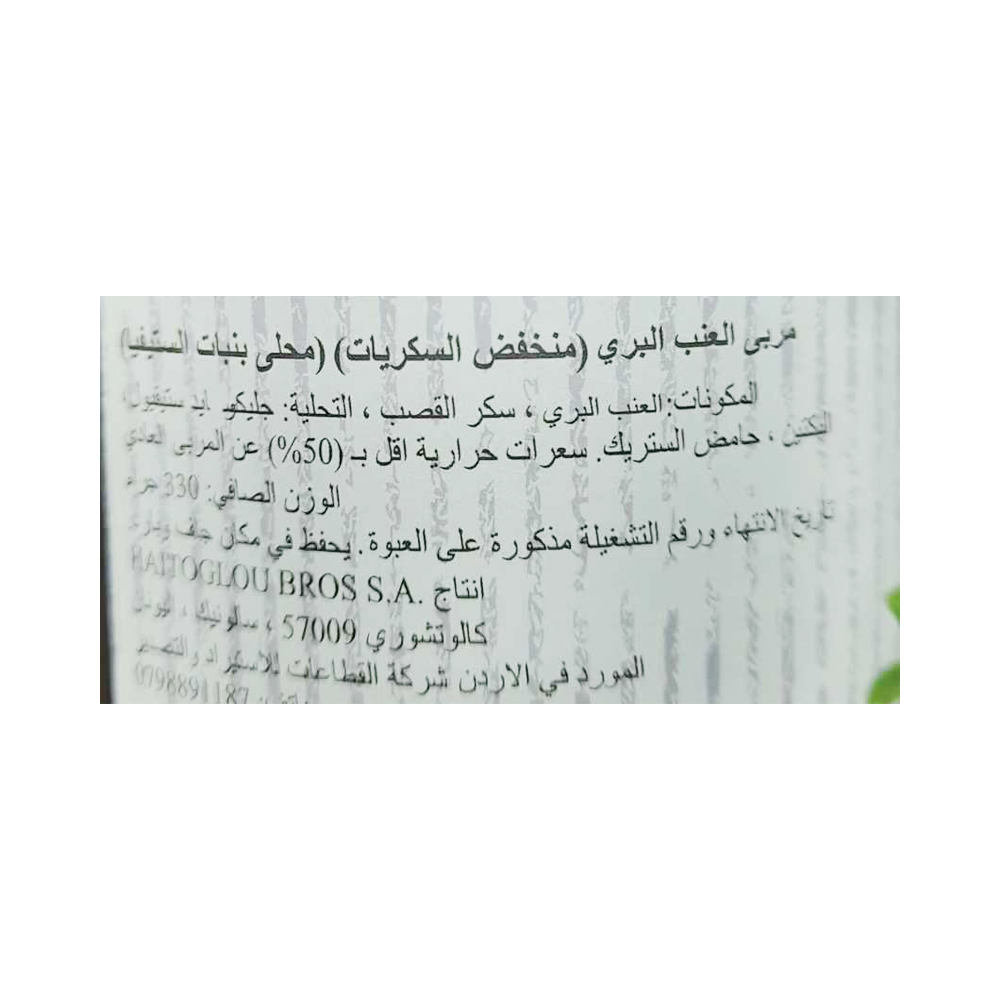 مربى العنب البري (منخفض السكريات) (محلى بنبات الستيفيا)
المكونات: العنب البري ، سكر القصب ، التحلية: جليكو ايد ستيفيول،
البكتين ، حامض الستريك. سعرات حرارية اقل بـ (50%) عن المربى العادي
الوزن الصافي: 330 جرام
تاريخ الانتهاء ورقم التشغيلة مذكورة على العبوة. يحفظ في مكان جاف وبارد
انتاج HAITOGLOU BROS S.A.
كالوتشوري 57009 ، سالونيك ، اليونان
المورد في الاردن شركة القطاعات للاستيراد والتصدير
0798891187